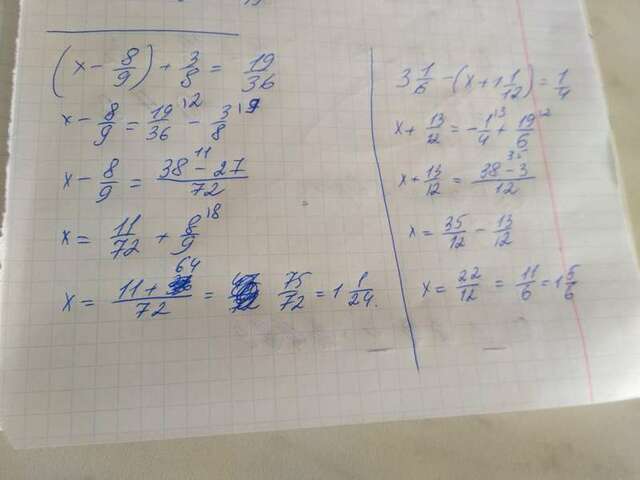 (x - 8/9) + 3/8 = 19/36
x - 8/9 = 19/36 ^2 - 3/8 ^9
x - 8/9 = (38 - 27)/72 ^11
x = 11/72 + 8/9 ^8
x = (11 + 64)/72 = 75/72 = 1 1/24.
3 1/6 - (x + 1 1/12) = 1/4
x + 13/12 = - 1/4 ^3 + 19/6 ^2
x + 13/12 = (38 - 3)/12 ^35
x = 35/12 - 13/12
x = 22/12 = 11/6 = 1 5/6